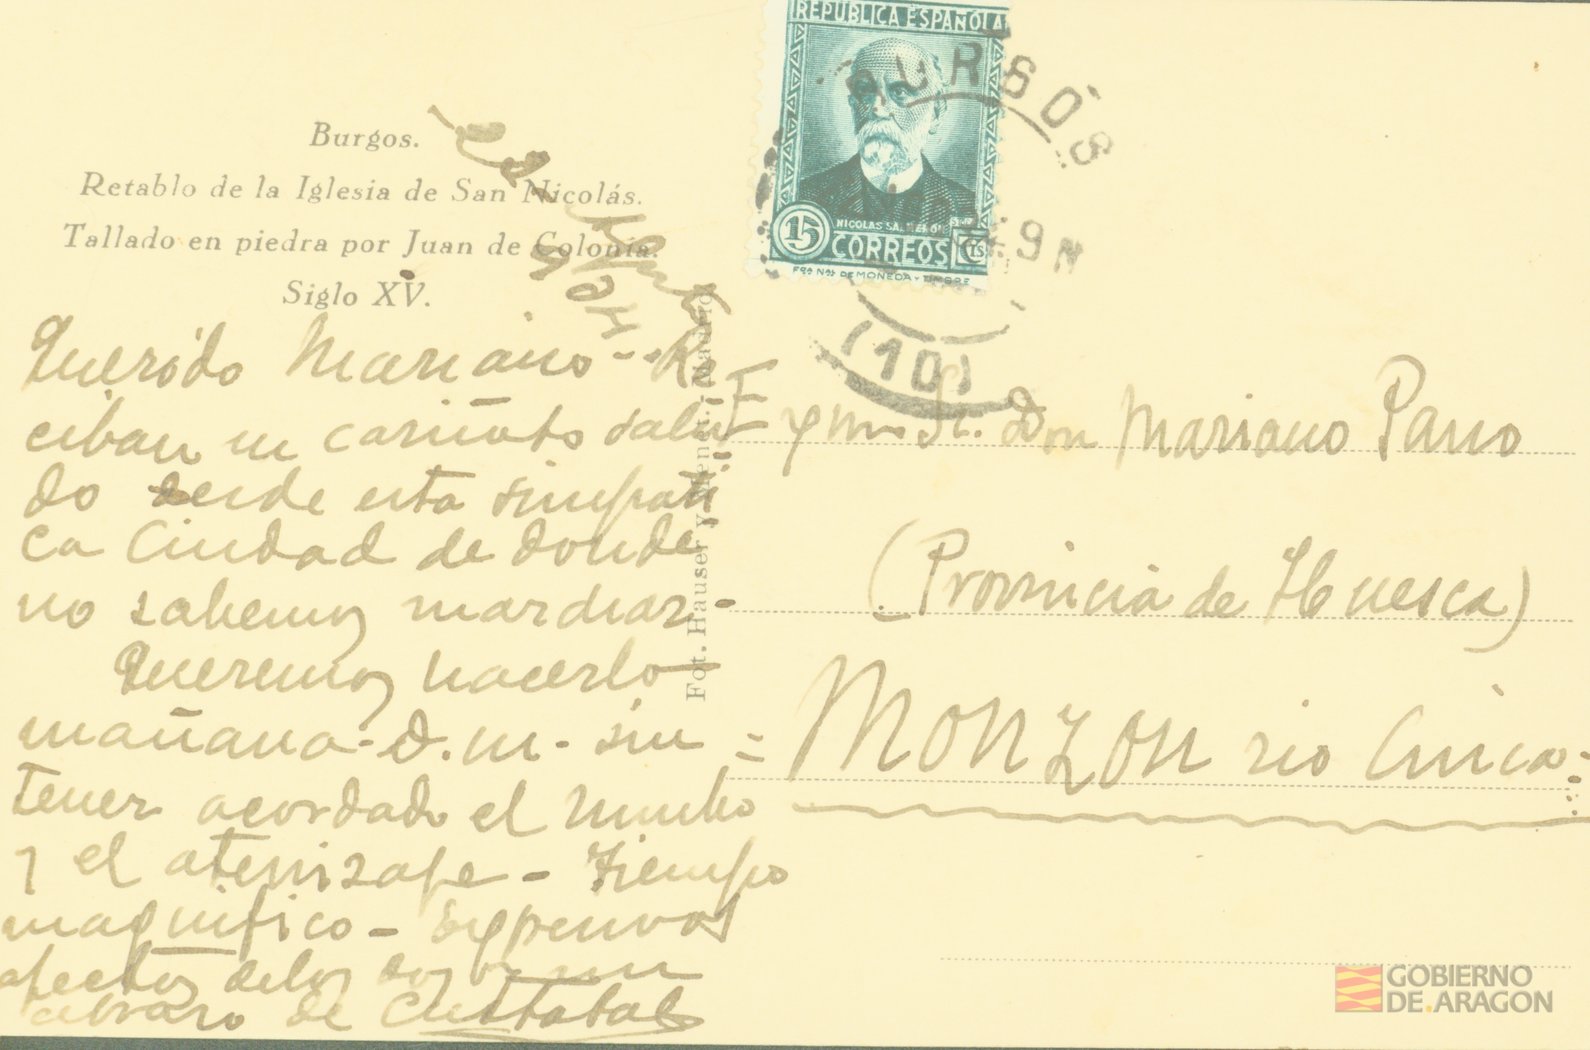 Burgos.
Retablo de la Iglesia de San Nicolás.
Tallado en piedra por Juan de Colonia.
Siglo XV.
Querido Mariano - Re
ciban un cariñoso salu
do desde esta simpati
ca Ciudad de donde
no sabemos marchar -
Queremos hacerlo
mañana - D. m. - sin
tener acordado el rumbo
y el aterrizaje - Tiempo
magnifico - Expresivos
afectos de los dos y un
abrazo de
Fot. Hauser y Menet. - Madrid
REPUBLICA ESPAÑOLA
NICOLAS SALMERON
15 CORREOS CTS
Fca Nal DE MONEDA Y TIMBRE
BURGOS
(10)
Sr. Don Mariano Pano
(Provincia de Huesca)
= MONZON rio Cinca =
GOBIERNO
DE ARAGON